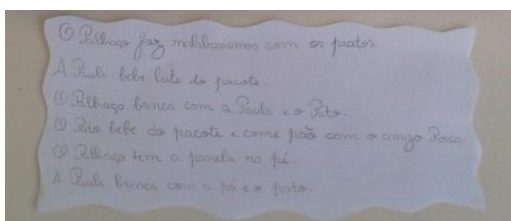 O Palhaço faz malabarismos com os pratos
A Paula bebe leite do pacote.
O Palhaço brinca com a Paula e o Pato.
O Pato bebe do pacote e come pão com o amigo Porco.
O Palhaço tem a panela na pá.
A Paula brinca com a pá e o pato.